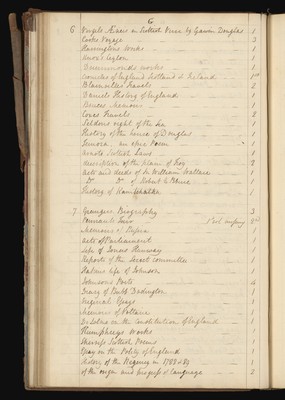 G
6 Virgils Æneis in Scottish Verse by Gawin Douglas 1
Cooks Voyage 3
Harringtons Works 1
Knox's Ceylon 1
Drummonds works 1
Cronicles of England Scotland & Ireland 1
Blainvilles Travels 2
Daniels History of England 1
Bruces Memoirs 1
Coxes Travels 2
Seldons right of the Sea 1
History of the house of Douglas 1
Temora an epic Poem 1
Scottish Laws 1
description of the plain of Troy 2
Acts and deeds of Sir William Wallace 1
Do Do of Robert the Bruce 1
History of Kamtschatka 1
7. Graingers Biography 3
Pennants Tour 1 vol missing
Memoirs of Russia 1
Acts of Parliament 1
Life of Jonas Hanway 1
Reports of the Secret Committee 1
Life of Johnson 1
Johnsons Poets 4
Diary of Bubb Dodington 1
Original Essays 1
Memoirs of Voltaire 1
De Lolme on the Constitution of England 1
Humphreys Works 1
Scottish Poems 1
Essay on the Polity of England 1
History of the Regency in 1788 & 89 1
Of the origin and progress of Language 2